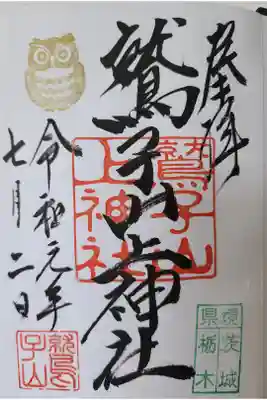 奉拝
鷲子山上神社
鷲子山
上神社
令和元年
七月二日
鷲子山
茨城
栃木